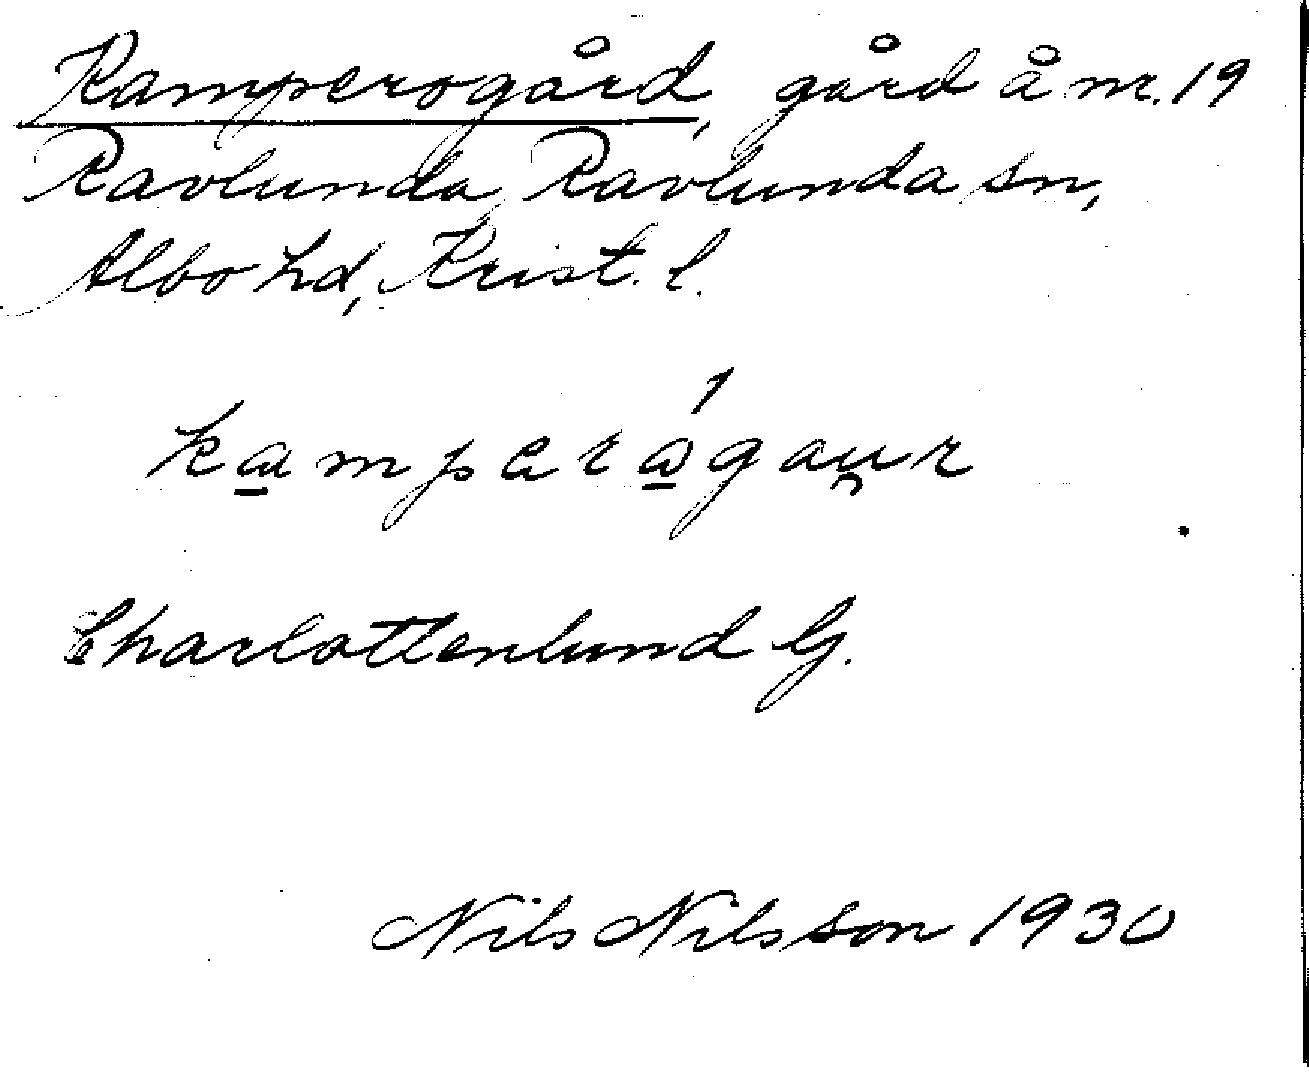 Kamperogård, gård å nr. 19
Ravlunda, Ravlunda sn,
Albo hd, Krist. l.
kamperågaur
Charlottenlund G.
Nils Nilsson 1930